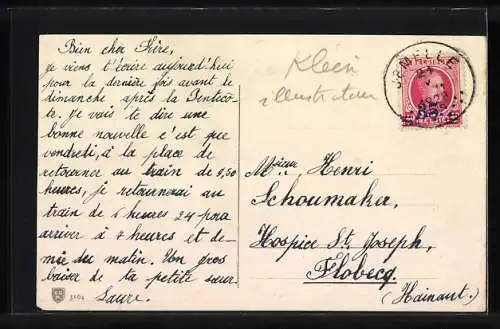 Bien cher Frère,
je viens t'écrire aujourd'hui
pour la dernière fois avant le
dimanche après la Penteco-
te. Je vais te dire une
bonne nouvelle c'est que
vendredi, à la place de
retourner au train de 9,50
heures, je retournerai au
train de 6 heures 24 pour
arriver à 7 heures et de-
mie du matin. Un gros
baiser de ta petite sœur
Laure.
Klein
illustrateur
MELLE
Henri
Schoumaker,
Hospice St. Joseph,
Flobecq.
(Hainaut.)